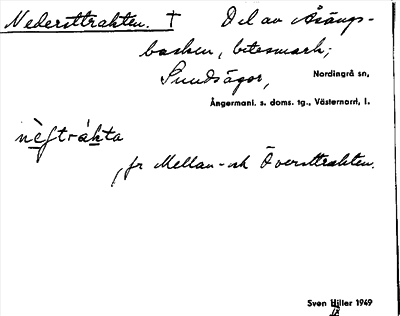 Nedersttrakten. † Del av Åsängs-
backen, betesmark;
Sundsägor, Nordingrå sn,
Ångermanl. s. doms. tg., Västernorrl, l.
nèftrákta
jfr Mellan- och Översttrakten.
Sven Hiller 1949